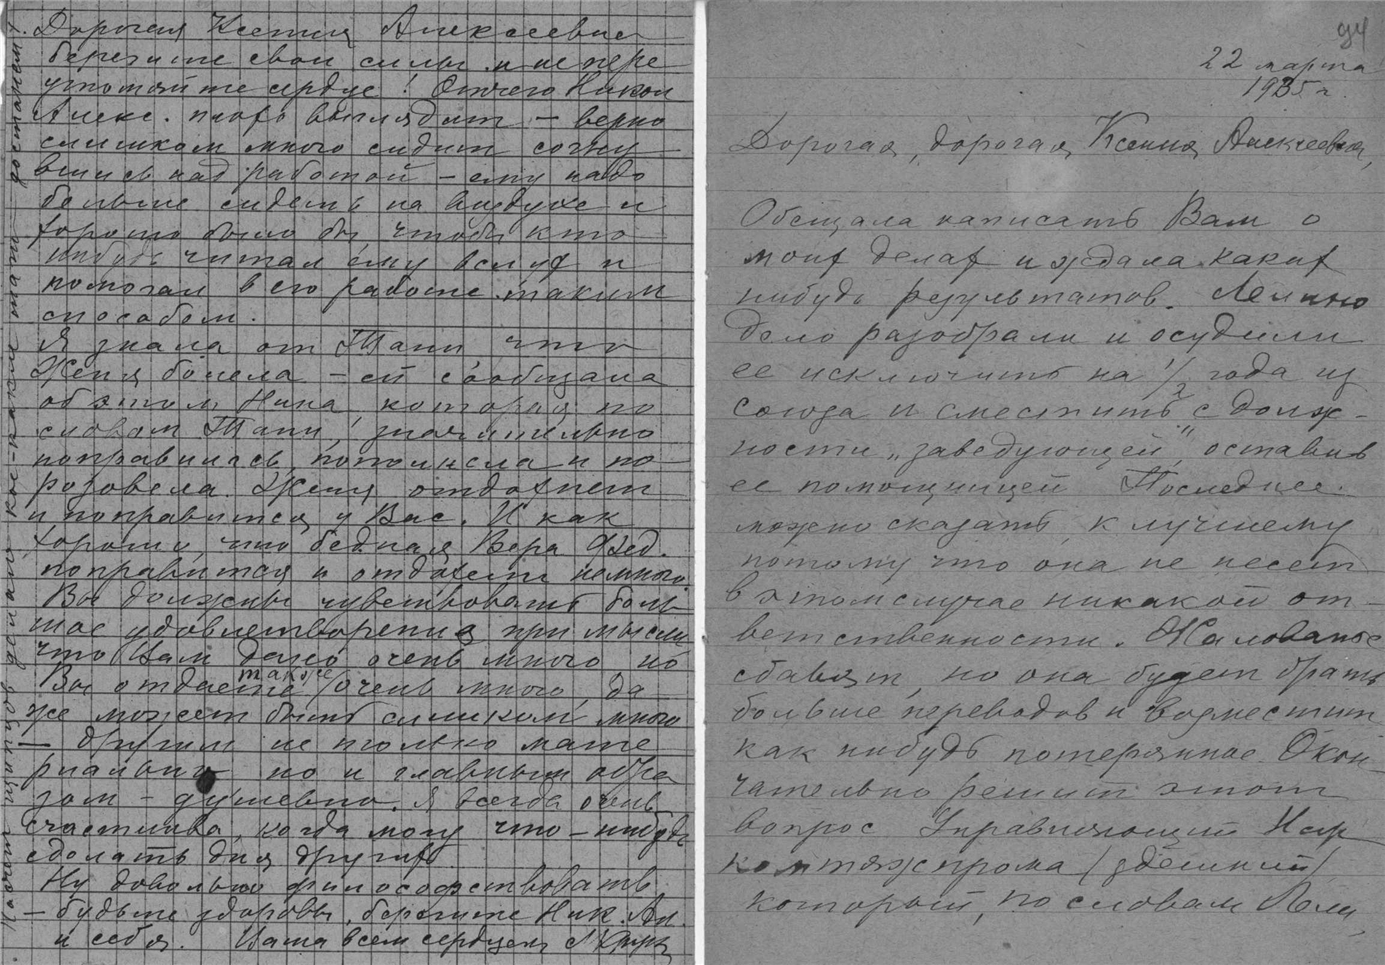 Дорогая Ксения Алексеевна
берегите свои силы и не пере
утомляйте сердце! Отчего Никол
Алекс. плохо выглядит – верно
слишком много сидит согну
вшись над работой – ему надо
больше сидеть на воздухе и
хорошо было бы, чтобы кто
нибудь читал ему вслух и
помогал в его работе таким
способом.
Я знала от Тани, что
Женя болела – ей сообщала
об этом Нина, которая, по
словам Тани, значительно
поправилась, пополнела и по
розовела. Женя отдохнет
и поправится у Вас. И как
хорошо, что бедная Вера Фед.
поправится и отдохнет немного
Вы должны чувствовать боль
шое удовлетворение при мысли
что Вам дано очень много, но
Вы отдаете также очень много, да
же может быть слишком много
– другим не только мате
риально но и главным обра
зом – душевно. Я всегда очень
счастлива, когда могу что-нибудь
сделать для других
Ну довольно философствовать
– будьте здоровы, берегите Ник. Ал.
и себя. Ваша всем сердцем
94
22 марта
1935 г.
Дорогая, дорогая Ксения Алексеевна,
Обещала написать Вам о
моих делах и ждала каких
нибудь результатов. Лелино
дело разобрали и осудили
ее исключить на 1/2 года из
союза и сместить с долж-
ности „заведующей", оставив
ее помощницей Последнее
можно сказать, к лучшему
потому что она не несет
в этом случае никакой от-
ветственности. Жалованье
сбавят, но она будет брать
больше переводов и возместит
как нибудь потерянное. Окон-
чательно решит этот
вопрос Управляющий Нар
комтяжпрома (здешний)
который, по словам Лели,